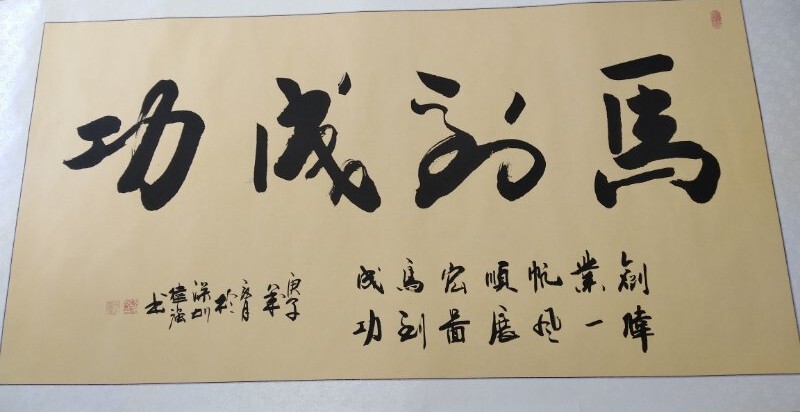 馬到成功
創暐
業一
帆風
順展
宏圖
馬到
成功
庚子
年
月於
深圳
偉強
書